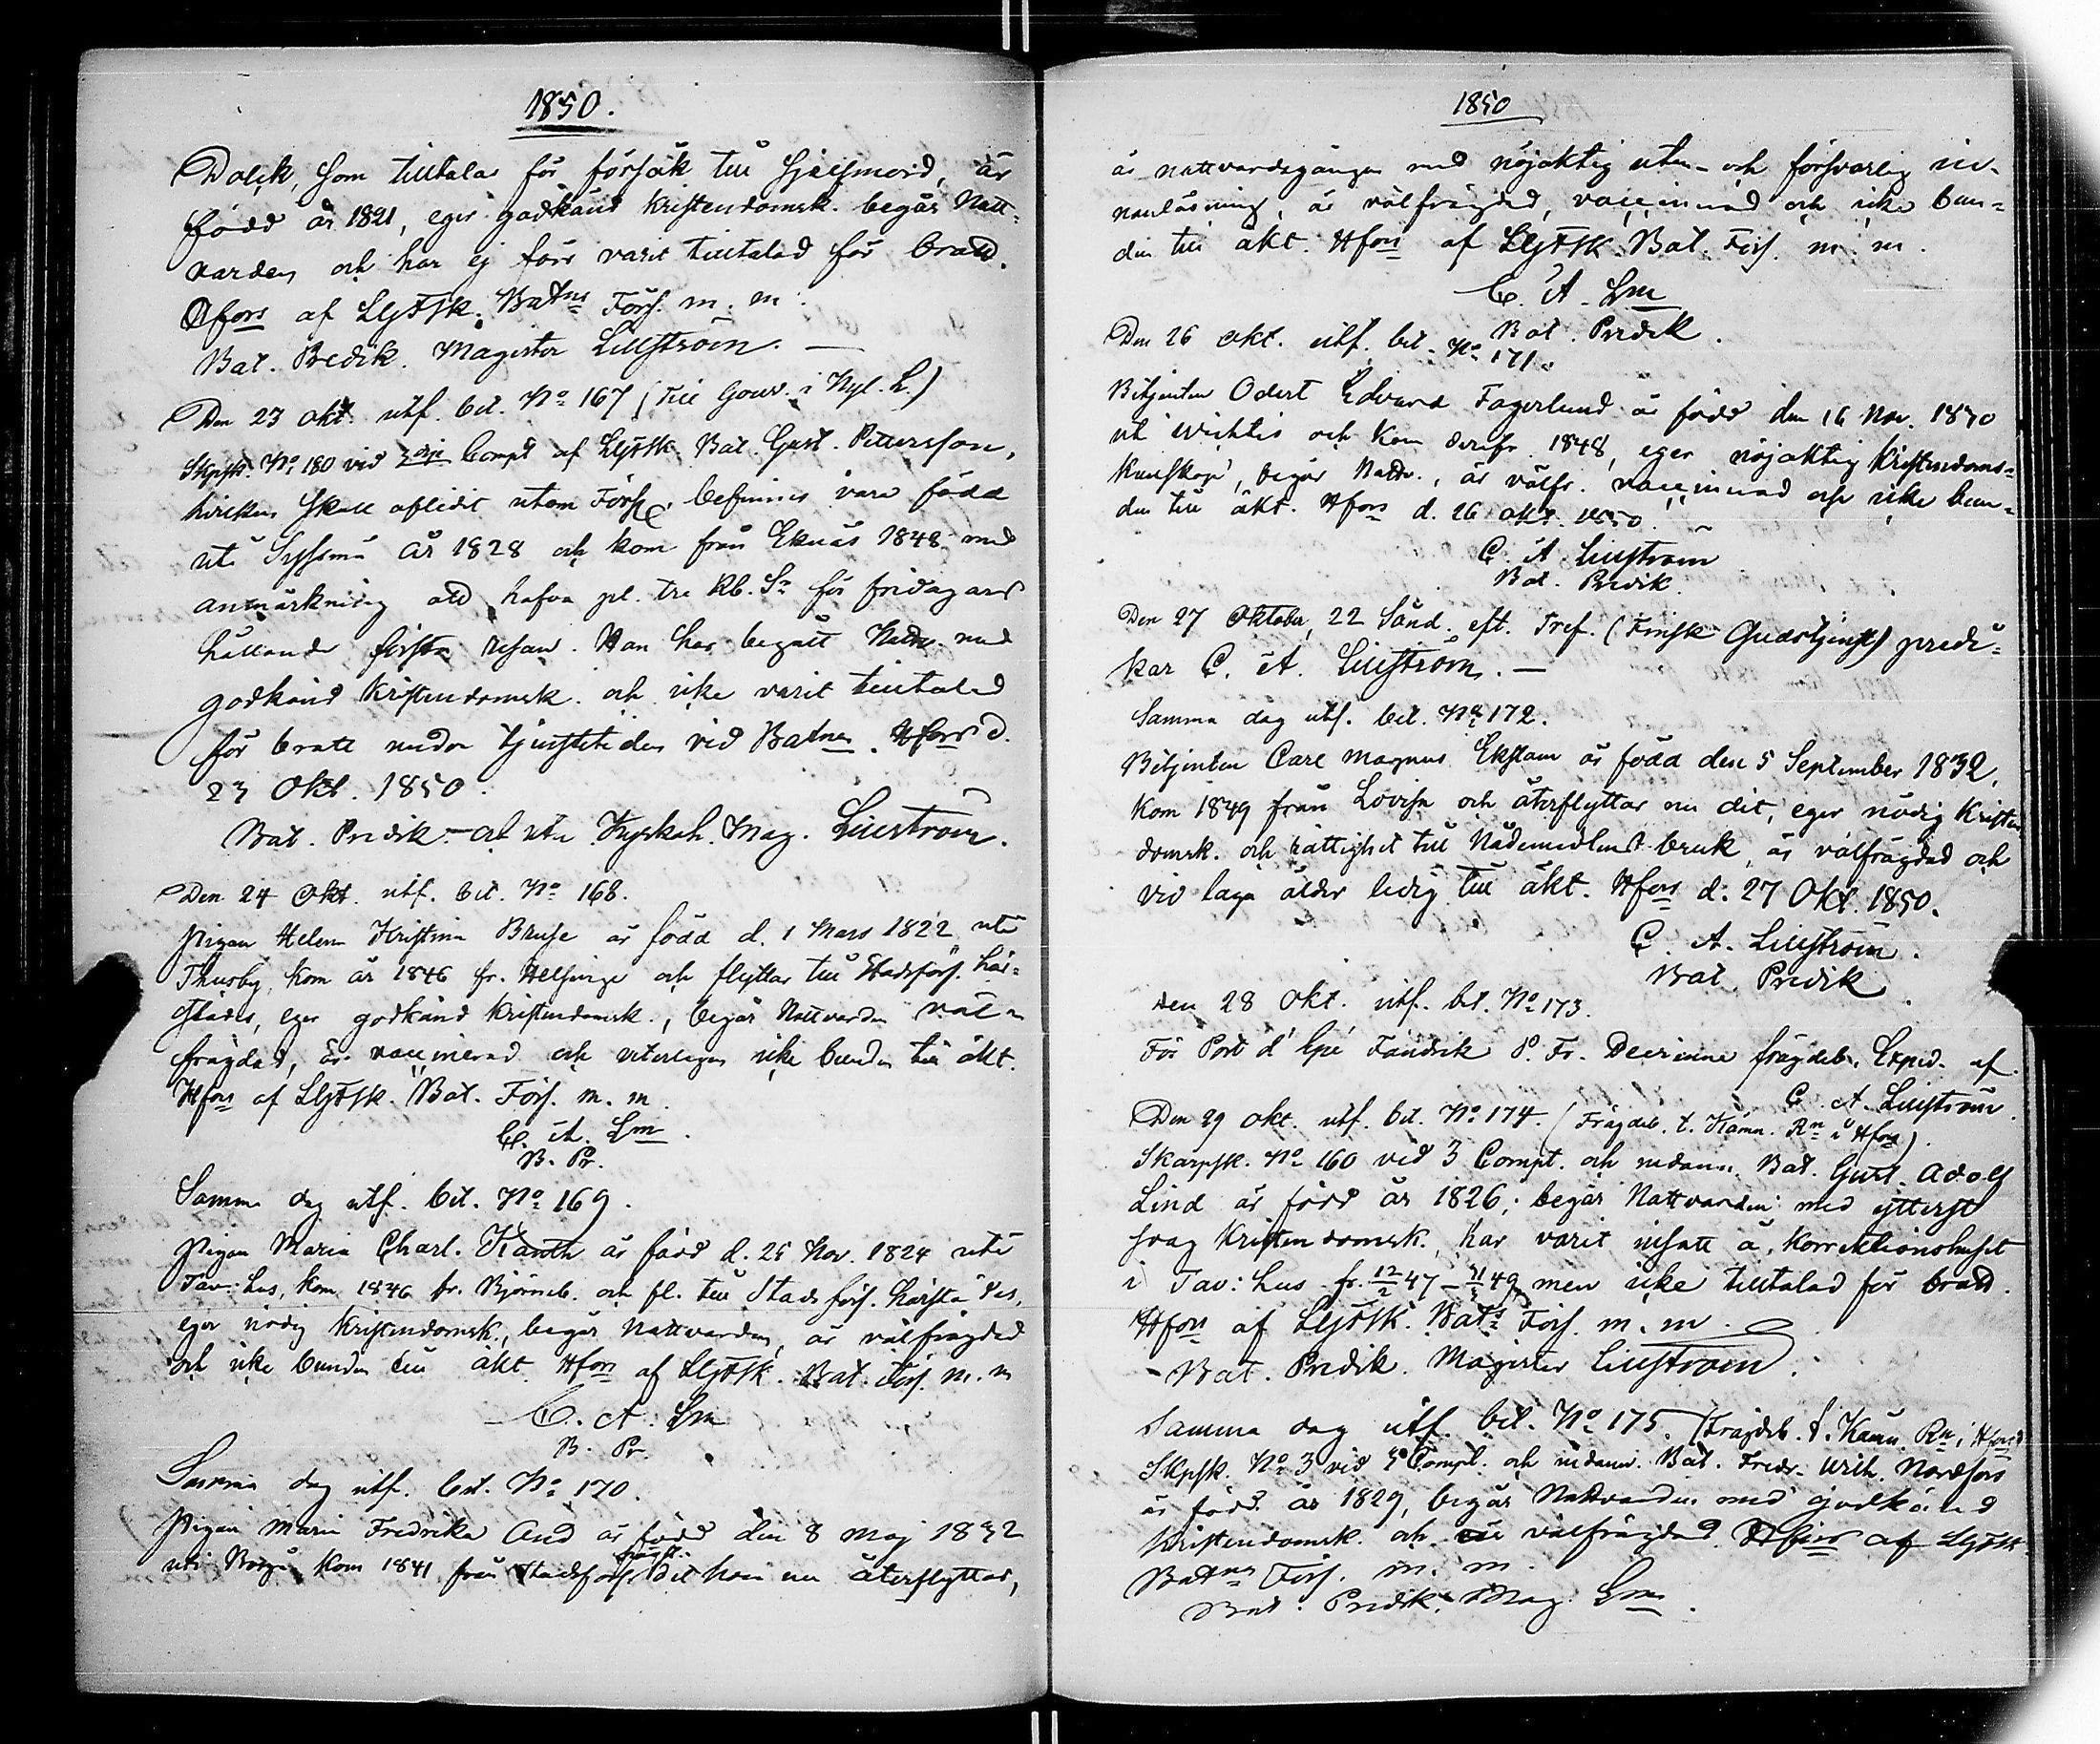 1850.
Dolck, som tilltalas för försök till Sjelfmord, är
född år 1821, eger godkänd kristendomsk. begår Natt-
varden och har ej förr varit tilltalad för brott.
Hfors af LGFSk. Batns Förs. m. m.
Bat. Predik. Magister Lillström. —
Den 23 Okt. utf. bet. No 167 (Till Gouv. i Nyl. L.)
Skpsk. No 180 vid 3dje Compt af LGFSk. Bat. Gust. Pettersson,
hvilken skall aflidit utom Förs., befinnes vara född
uti Sysmä år 1828 och kom från Ekenäs 1848 med
anmärkning att hafva pl. tre Rb. Sr för fridagars
hållande första resan. Han har begått Nattv. med
godkänd Kristendomsk. och icke varit tilltalad
för brott under tjenstetiden vid Batnen. Hfors d.
23 Okt. 1850.
Bat. Predik. Mag. Lillström.
Den 24 Okt. utf. bet. No 168.
Pigan Helena Kristina Bruse är född d. 1 Mars 1822 uti
Thusby, kom år 1846 fr. Helsinge och flyttar till Stadsförs. här-
städes, eger godkänd kristendomsk., begår Nattvarden väl-
frägdad, är vaccinerad och veterligen icke bunden till äkt.
Hfors af LGFSk. Bat. Förs. m. m.
C. A. Lm.
B. Pr.
Samma dag utf. bet. No 169.
Pigan Maria Charl. Kanth är född d. 25 Nov. 1824 uti
Tav: hus, kom 1846 fr. Björneb. och fl. till Stads förs. härstädes,
eger nödig kristendomsk., begår Nattvarden, är välfrägdad
och icke bunden till äkt. Hfors af LGFSk. Bat. Förs. m. m
C. A. Lm
B. Pr.
Samma dag utf. bet. No 170.
Pigan Maria Fredrika And är född den 8 Maj 1832
uti Borgå kom 1841 från Stadsförs. dit hon nu återflyttar,
1850
är nattvardsgången med nöjaktig utan- och försvarlig in-
nanläsning, är välfrägdad, vaccinerad och icke bun-
den till äkt. Hfors af LGFSk. Bat. Förs. m. m.
C. A. Lm
Bat. Predik.
Den 26 Okt. utf. bet. No 171.
Betjenten Odert Edvard Fagerlund är född den 16 Nov. 1830
uti Wichtis och kom derifr. 1848, eger nöjaktig Kristendoms-
kunskap, begår Nattv., är välfr. vaccinerad och icke bun-
den till äkt. Hfors d. 26 Okt. 1850. —
C. A. Lillström
Bat. Predik.
Den 27 Oktober, 22 Sönd. eft. Tref. (Finsk Gudstjenst) predi-
kar C. A. Lillström. —
Samma dag utf. bet. No 172.
Betjenten Carl Magnus Ekstam är född den 5 September 1832,
kom 1849 från Lovisa och återflyttar nu dit, eger nödig Kristen-
domsk. och rättighet till Nådemedlens bruk, är välfrägdad och
vid laga ålder ledig till äkt. Hfors d. 27 Okt. 1850.
C. A. Lillström.
Bat. Predik
Den 28 Okt. utf. bet. No 173.
För Port d' Epé Fändrik frägdeb. Exped. af
C. A. Lillström.
Den 29 Okt. utf. bet. No 174. (Frägdeb. t. Kämn. Rn i Hfors).
Skarpsk. No 160 vid 3 Compt. och Bat. Gust. Adolf
Lind är född år 1826, begår Nattvarden med ytterst
svag Kristendomsk., har varit insatt å Korrektionshuset
i Tav: hus fr. 12/2 47 – 49 men icke tilltalad för brott.
Hfors af LGFSk. Bats Förs. m. m.
Bat. Predik. Magister Lillström.
Samma dag utf. bet. No 175. (Frägdeb. t. Kämn. Rn i Hfors)
Skpsk. No 3 vid Compt. och Bat. Fredr. Wilh. Nordfors
är född år 1829, begår Nattvarden med godkänd
Kristendomsk. och välfrägdad. Hfors af LGFSk.
Batns Förs. m. m.
Bat. Predik. Mag. Lm.